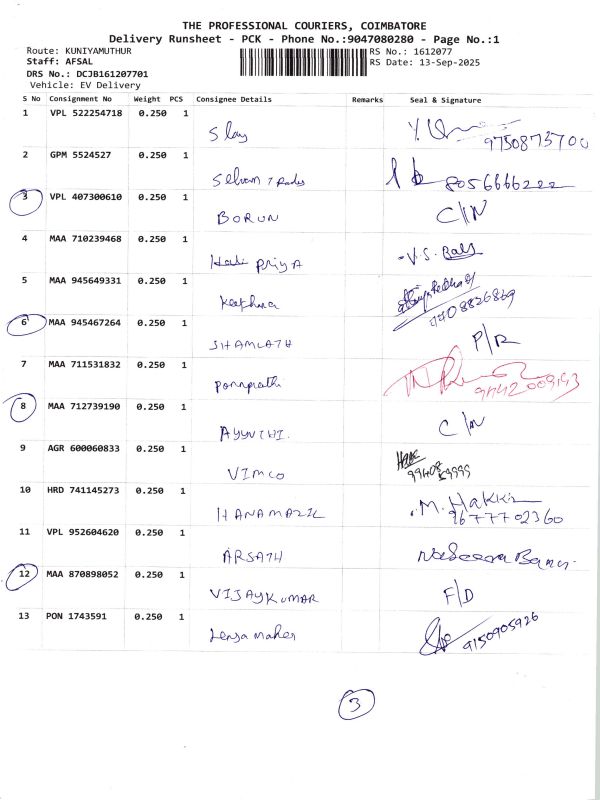 THE PROFESSIONAL COURIERS, COIMBATORE
Delivery Runsheet - PCK - Phone No.:9047080280 - Page No.:1
Route: KUNIYAMUTHUR
RS No.: 1612077
Staff: AFSAL
RS Date: 13-Sep-2025
DRS No.: DCJB161207701
Vehicle: EV Delivery
S No Consignment No Weight PCS Consignee Details Remarks Seal & Signature
1 VPL 522254718 0.250 1
9750873700
2 GPM 5524527 0.250 1
Selvam Trades 8056666222
3 VPL 407300610 0.250 1
BORUN C/N
4 MAA 710239468 0.250 1
Hari priya V.S. Bals
5 MAA 945649331 0.250 1
Keerthana
7708826869
6 MAA 945467264 0.250 1
SHAMLATH P/R
7 MAA 711531832 0.250 1
9442009193
8 MAA 712739190 0.250 1
C/N
9 AGR 600060833 0.250 1
VIMCO
10 HRD 741145273 0.250 1
HANAMAZIL M. Hakkim
9677702360
11 VPL 952604620 0.250 1
ARSATH
12 MAA 870898052 0.250 1
VIJAYKUMAR F/D
13 PON 1743591 0.250 1
9150905926
3